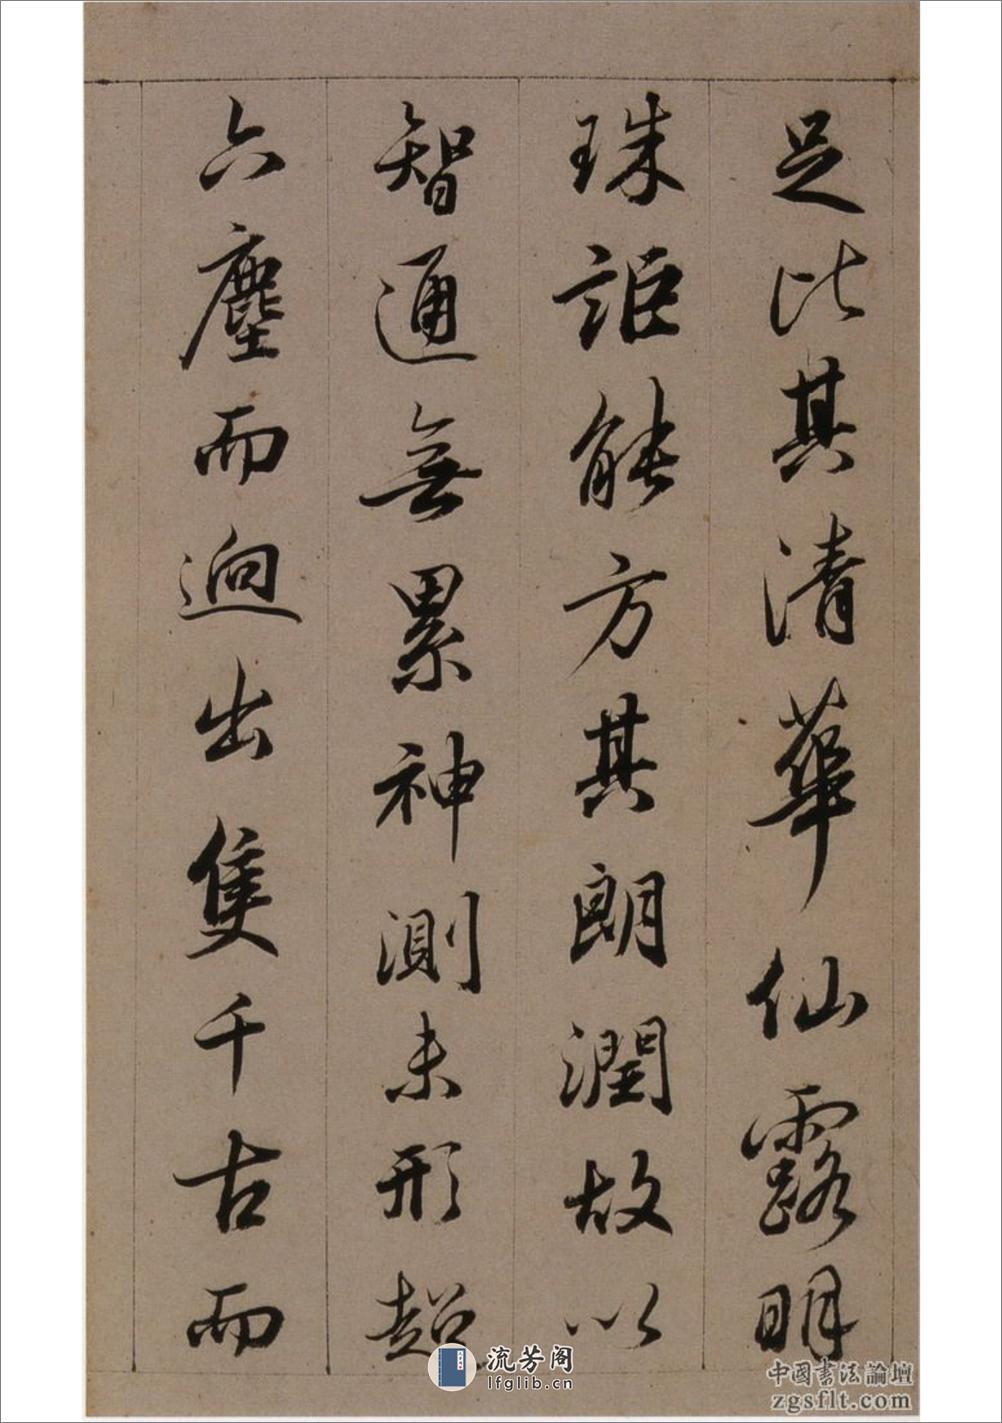 足比其清華仙露明
珠詎能方其朗潤故以
智通無累神測未形超
六塵而逈出隻千古而
流芳阁
lfglib.cn
中國書法論壇
zgsflt.com